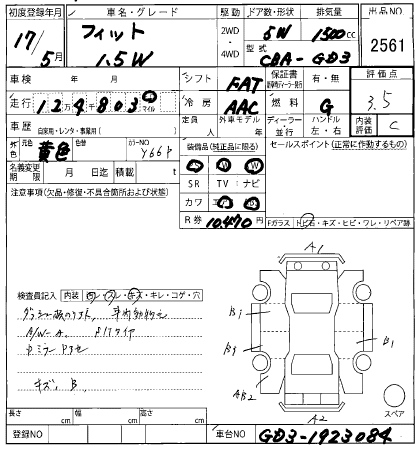 初度登録年月 車名・グレード 駆動 ドア数・形状 排気量 出品NO
17/5月 フィット 1.5W 2WD・4WD 5W 1500cc 2561
型式 CBA-GD3
車検 年 月 シフト FAT 保証書 有・無 評価点 3.5
走行 12万4千803 マイル 冷房 AAC 燃料 G
車歴 自家用・レンタ・事業用( ) 定員 人 外車モデル 年 ディーラー・並行 ハンドル 左・右 内装評価 C
外色 元色 黄色 色替 カラーNO Y66P 装備品(純正品に限る) セールスポイント(正常に作動するもの)
名義変更期限 月 日迄 積載 t
PS PW
注意事項(欠品・修復・不具合箇所および状態) SR TV ナビ
カワ エアB
R券 10,470円 Fガラス トビ石・キズ・ヒビ・ワレ・リペア跡
A1
検査員記入 内装 コゲ・スレ・キズ・キレ・コゲ・穴
B1
B1
A/W-A
キズ、B
AB2
A2
スペア
長さ cm 幅 cm 高さ cm
登録NO 車台NO GD3-1923084